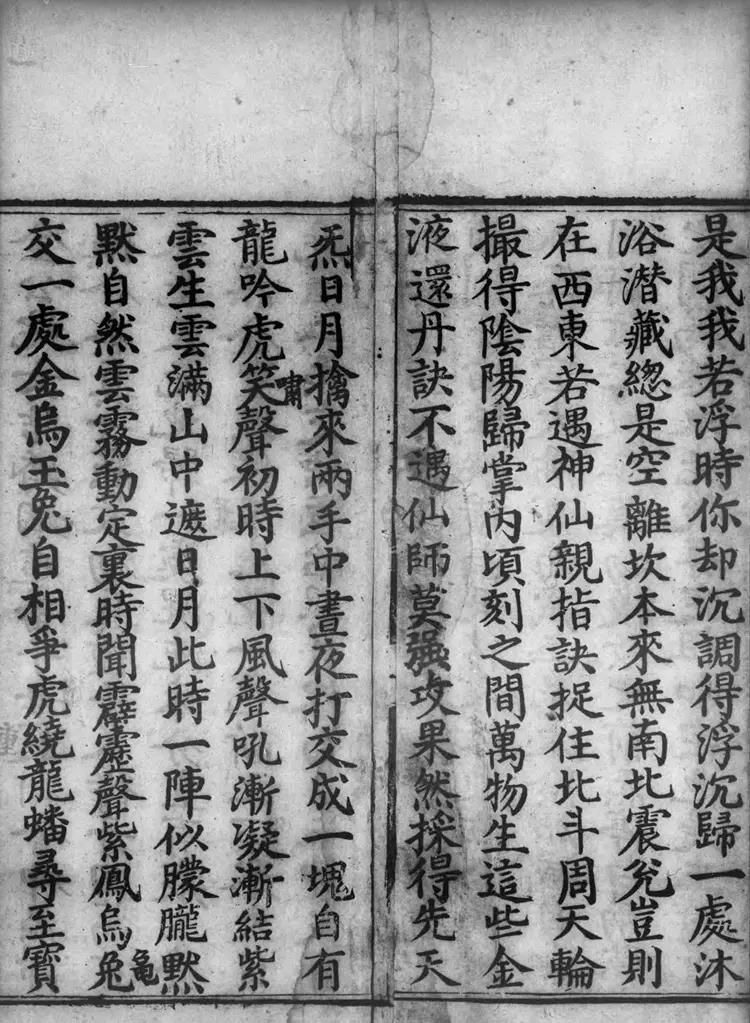 是我我若浮時你却沉調得浮沉歸一處沐
浴潛藏緫是空離坎本來無南北震兊豈則
在西東若遇神仙親指訣捉住北斗周天輪
撮得陰陽歸掌內頃刻之間萬物生這些金
液還丹訣不遇仙師莫强攻果然採得先天
炁日月擒來兩手中晝夜打交成一塊自有
龍吟虎笑嘯聲初時上下風聲吼漸凝漸結紫
雲生雲滿山中遮日月此時一陣似朦朧默
默自然雲霧動定裏時聞霹靂聲紫鳳烏兔龜
交一處金烏玉兔自相爭虎繞龍蟠尋至寶